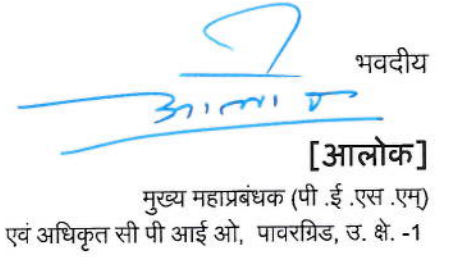 भवदीय
आलोक
[आलोक]
मुख्य महाप्रबंधक (पी .ई .एस .एम)
एवं अधिकृत सी पी आई ओ, पावरग्रिड, उ. क्षे. -1